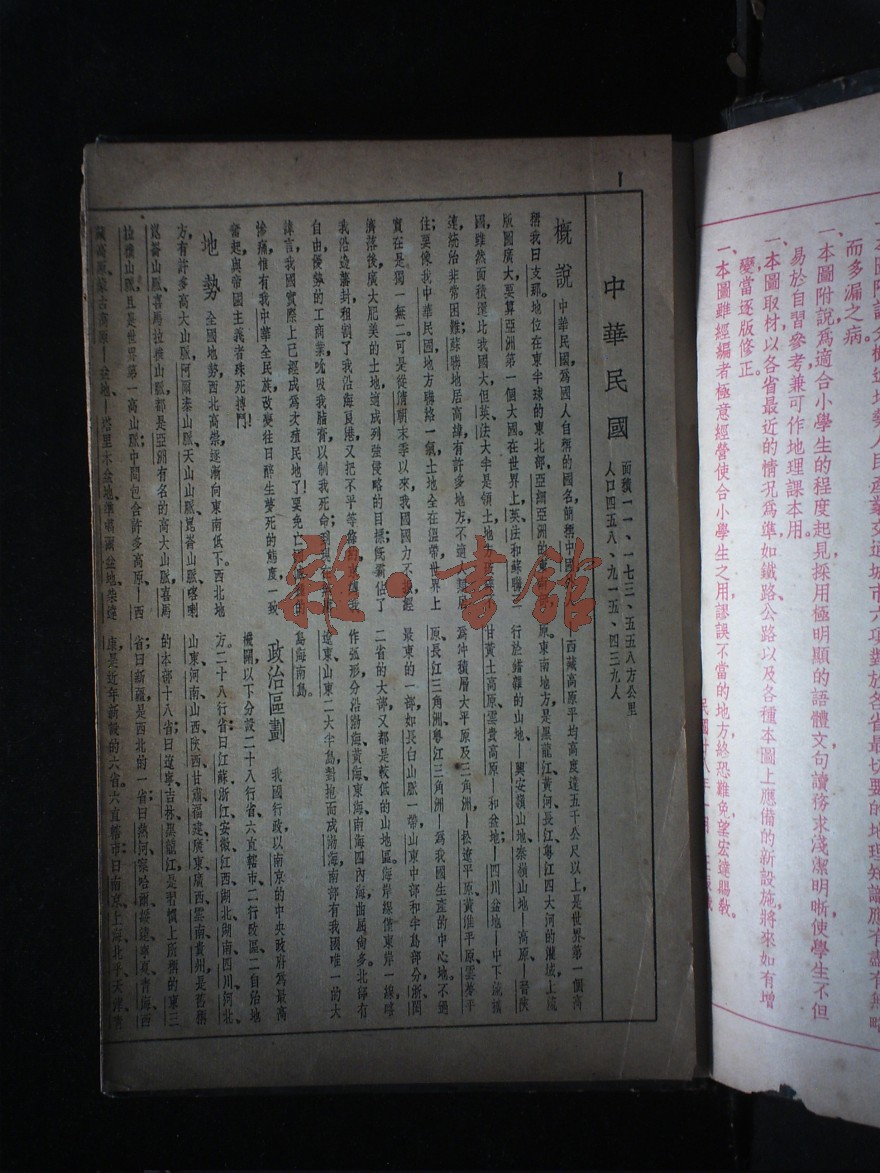 而多漏之病。
一、本圖附說為適合小學生的程度起見採用極明顯的語體文句讀務求淺潔明晰使學生不但
易於自習參考兼可作地理課本用。
一、本圖取材以各省最近的情况為準如鐵路公路以及各種本圖上應備的新設施將來如有增
變當逐版修正。
一、本圖雖經編者極意經營使合小學生之用謬誤不當的地方終恐難免望宏達賜教。
1
中華民國
面積一一、一七三、五五八方公里
人口四五八、九一五、四三九人
概說 中華民國,為國人自稱的國名,簡稱中國,
稱我曰支那。地位在東半球的東北部,亞細亞洲的東
版圖廣大,要算亞洲第一個大國。在世界上,英法和蘇聯
國,雖然面積還比我國大,但英、法大半是領土,地方
達,統治非常困難;蘇聯地居高緯,有許多地方不適
住;要像我中華民國地方聯絡一氣,土地全在溫帶,世界上
實在是獨一無二。可是從清朝末季以來,我國國力不
濟落後,廣大肥美的土地,遂成列強侵略的目標;既霸佔了
我沿邊藩封,租割了我沿海良港,又把不平等條約
自由,優勢的工商業,吮吸我脂膏,以制我死命;
諱言,我國實際上已經成為次殖民地了!要免亡
慘痛,惟有我中華全民族改變往日醉生夢死的態度,一致
奮起,與帝國主義者殊死搏鬥!
地勢 全國地勢,西北高崇,逐漸向東南低下。西北地
方,有許多高大山脈,阿爾泰山脈、天山山脈、崑崙山脈、喀喇
崑崙山脈、喜馬拉雅山脈,都是亞洲有名的高大山脈,喜馬
拉雅山脈,且是世界第一高山脈;中間包含許多高原——西
藏高原、蒙古高原——盆地——塔里木盆地、準噶爾盆地、柴達
西藏高原平均高度達五千公尺以上,是世界第一個高
原。東南地方,是黑龍江、黃河、長江、粵江四大河的流域,上流
行於錯雜的山地——興安嶺山地、秦嶺山地——高原——晉陝
甘黃土高原、雲貴高原——和盆地——四川盆地——中下流構
為冲積層大平原及三角洲——松遼平原、黃淮平原、雲夢平
原、長江三角洲、粵江三角洲——為我國生產的中心地;不過
最東的一部,如長白山脈一帶,山東中部和半島部分、浙閩
二省的大部,又都是較低的山地區。海岸線僅東岸一線,略
作弧形,分沿渤海、黃海、東海、南海四內海,曲風尚多,北部有
遼東、山東二大半島對抱而成渤海,南部有我國唯一的大
島海南島。
政治區劃 我國行政,以南京的中央政府為最高
機關,以下分設二十八行省、六直轄市、二行政區、二自治地
方。二十八行省:曰江蘇、浙江、安徽、江西、湖北、湖南、四川、河北、
山東、河南、山西、陝西、甘肅、福建、廣東、廣西、雲南、貴州,是舊稱
的本部十八省;曰遼寧、吉林、黑龍江,是習慣上所稱的東三
省;曰新疆,是西北的一省;曰熱河、察哈爾、綏遠、寧夏、青海、西
康,是近年新設的六省。六直轄市:曰南京、上海、北平、天津、青
雜·書館